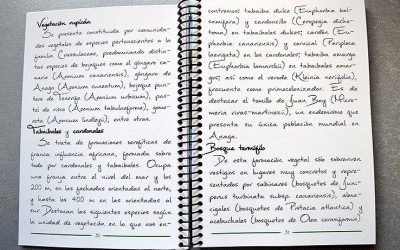 Vegetación rupícola
Se presenta constituida por comunida-
des vegetales de especies pertenecientes a la
familia Crassulaceae, predominando distin-
tas especies de bejeques como el góngaro ca-
nario (Aeonium canariensis), góngaro de
Anaga (Aeonium cuneatum), bejeque pun-
tero de Tenerife (Aeonium urbicum), pas-
tel de risco (Aeonium tabulaeforme), gomere-
ta (Aeonium lindleyi), entre otras.
Tabaibales y cardonales
Se trata de formaciones xerofíticas de
franca influencia africana, formadas sobre
todo por cardonales y tabaibales. Ocupa
una franja entre el nivel del mar y los
200 m. en las fachadas orientadas al norte,
y hasta los 400 m. en las orientadas al
sur. Destacan las siguientes especies según
la unidad de vegetación en la que nos en-
30
contremos: tabaiba dulce (Euphorbia bal-
samifera) y cardoncillo (Ceropegia dicho-
toma) en tabaibales dulces; cardón (Eu-
phorbia canariensis) y cornical (Periploca
laevigata) en los cardonales; tabaiba amarga
(Euphorbia lamarckii) en tabaibales amar-
gos; así como el verode (Kleinia neriifolia),
frecuente como primocolonizador. Es de
destacar el tomillo de Juan Bay (Micro-
meria rivas-martinezii), un endemismo que
presenta su única población mundial en
Anaga.
Bosque termófilo
De esta formación vegetal sólo sobreviven
vestigios en lugares muy concretos y repre-
sentados por sabinares (bosques de Juni-
perus turbinata subsp. canariensis), almá-
cigales (bosquetes de Pistacia atlantica) y
acebuchales (bosquetes de Olea cerasiformis).
31